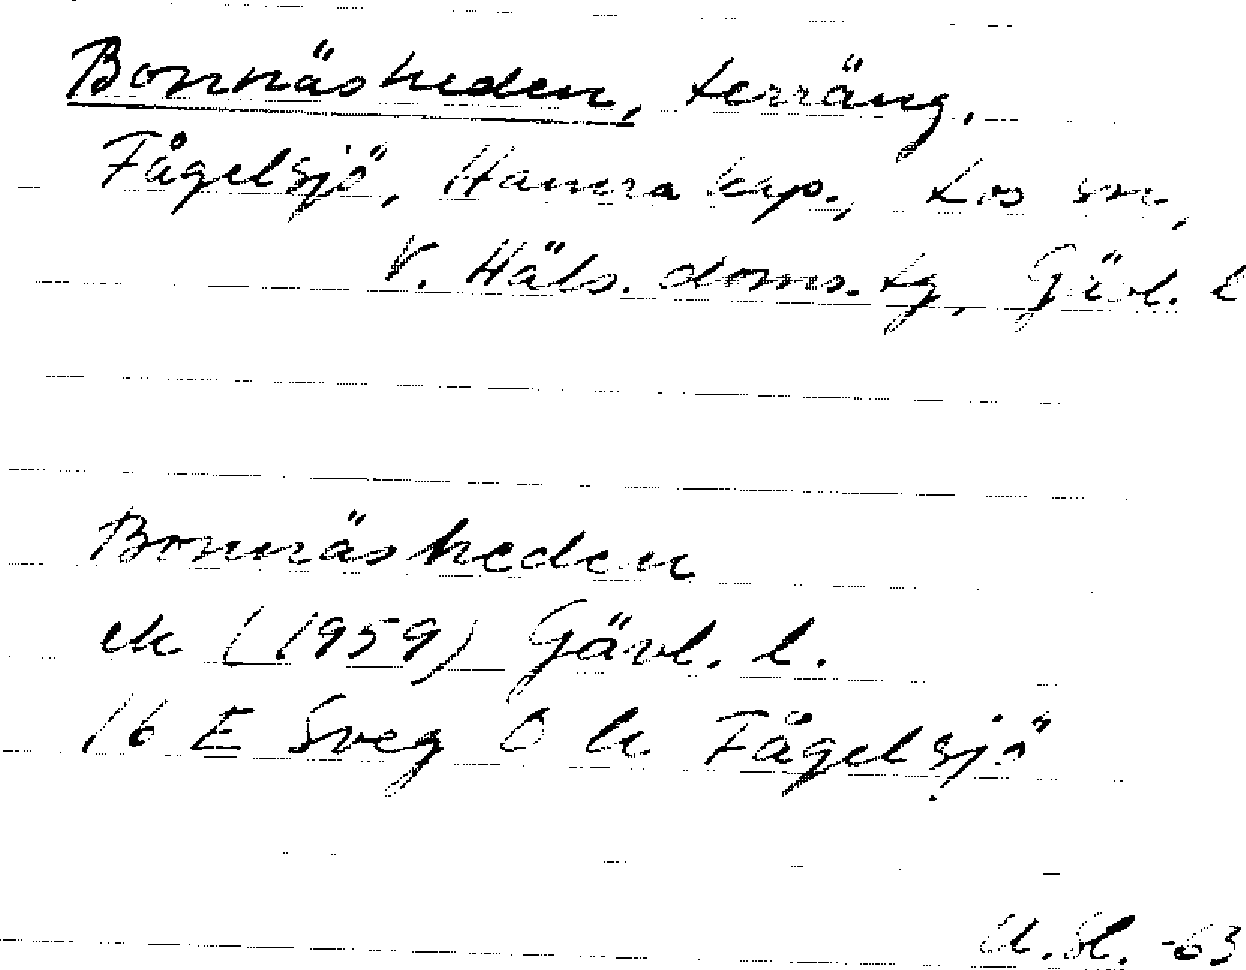 Bonnäsheden, terräng,
Fågelsjö, Hamra kap., Los sn,
V. Häls. doms. tg, Gävl. l
Bonnäsheden
ek (1959) Gävl. l.
16 E Sveg Ö h Fågelsjö
U.Sl. -63